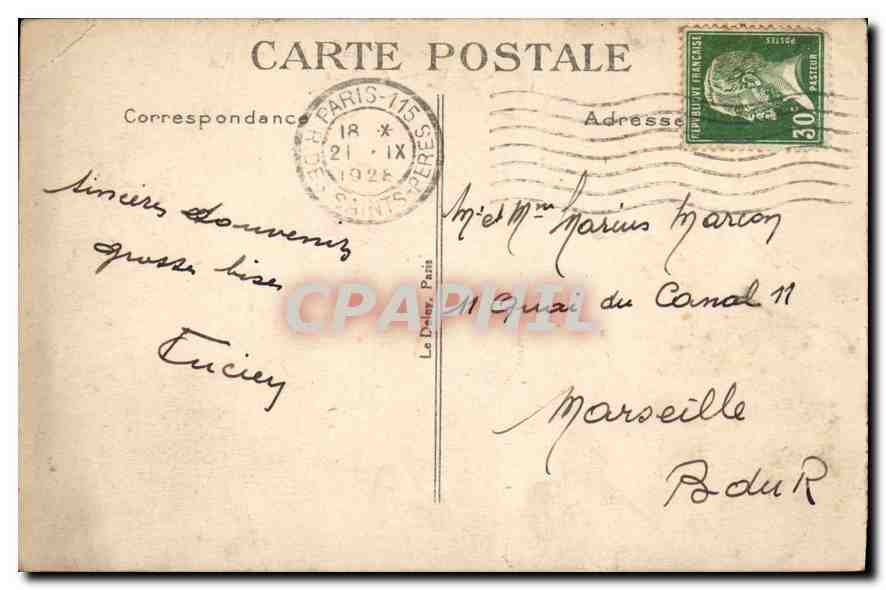 CARTE POSTALE
Correspondance
Adresse
PARIS-115
R. DES SAINTS-PERES
18 X
21 . IX
1928
REPUBLIQUE FRANÇAISE
POSTES
PASTEUR
30c
Sincères Souvenirs
grosses bises
Lucien
Le Deley, Paris
Mr et Mme Marius Marcon
11 Quai du Canal 11
Marseille
B du R
CPAPHIL